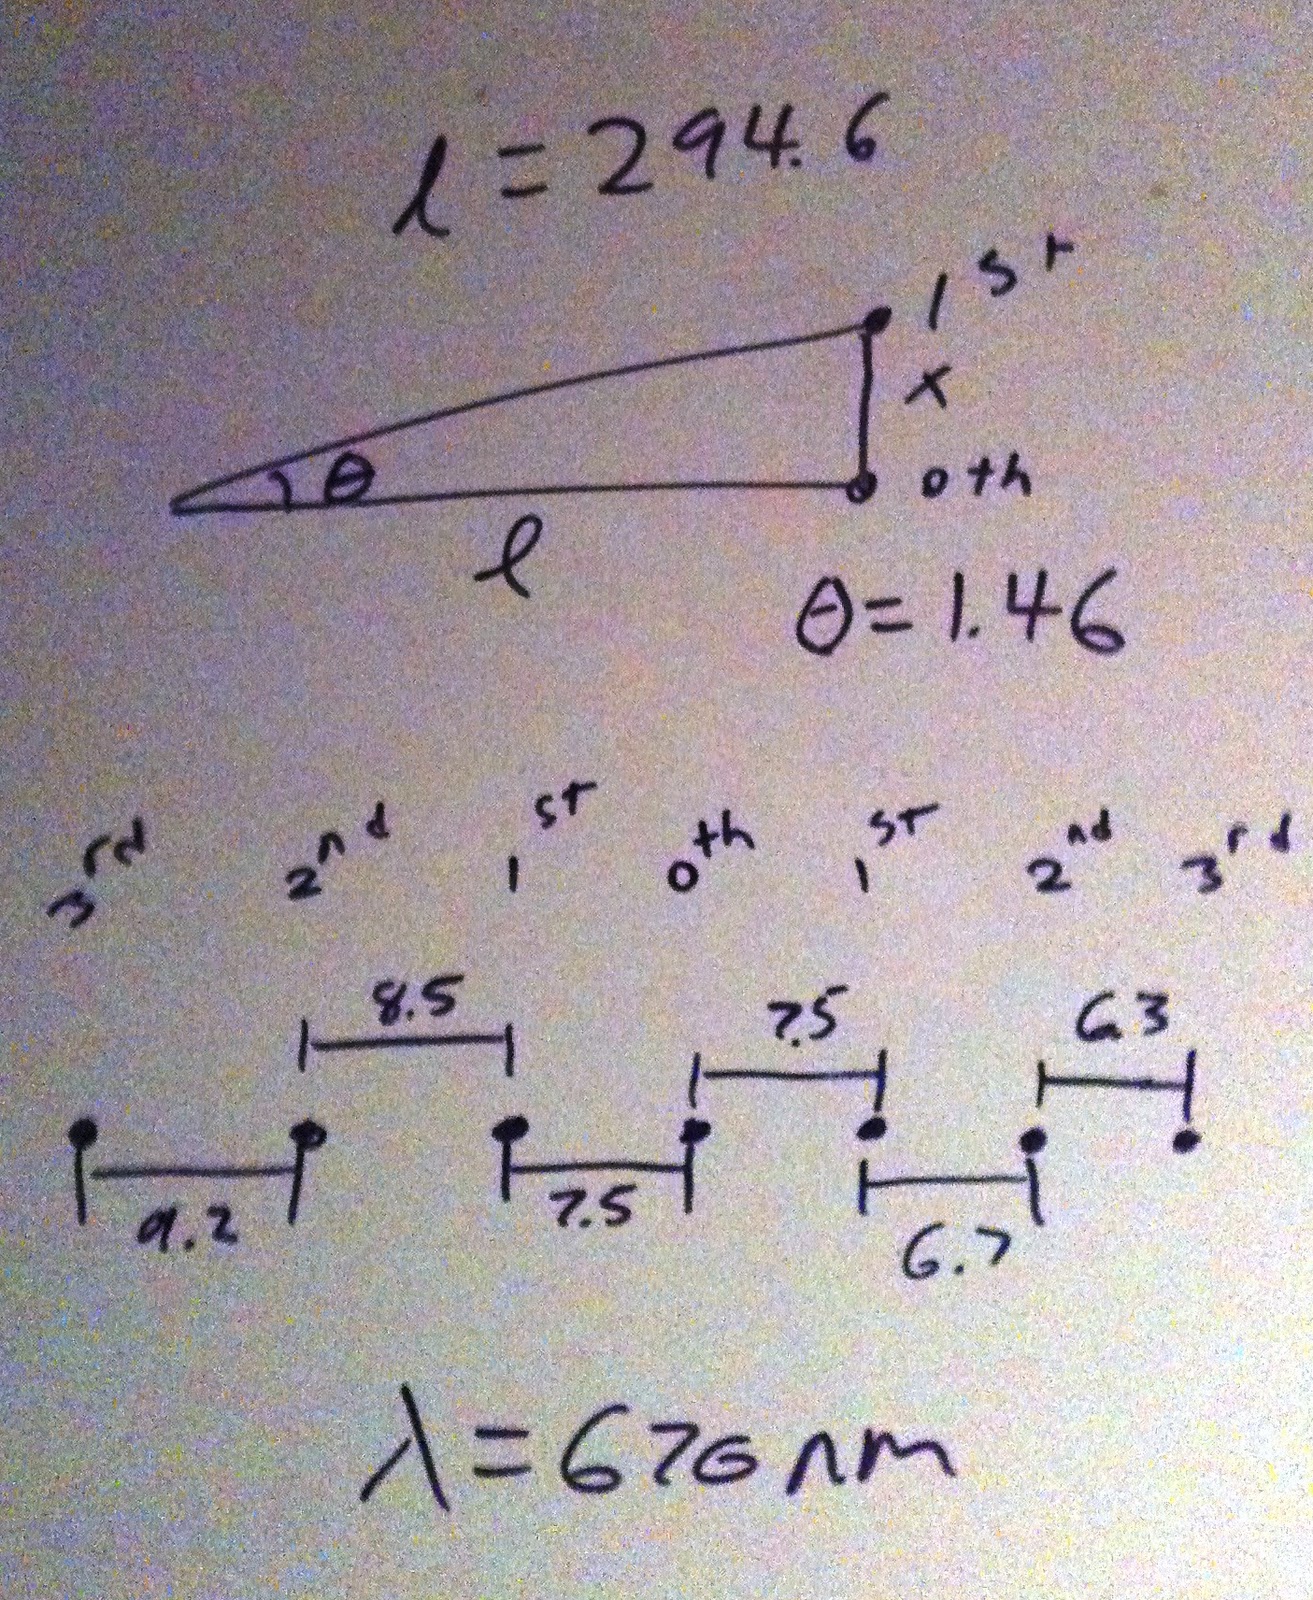 l = 294.6
1st
x
θ
0th
l
θ = 1.46
3rd 2nd 1st 0th 1st 2nd 3rd
8.5 7.5 6.3
9.2 7.5 6.7
λ = 676 nm